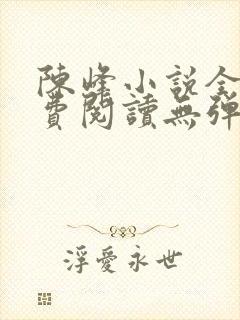 陳峰小說全
費閱讀無彈
浮愛永世